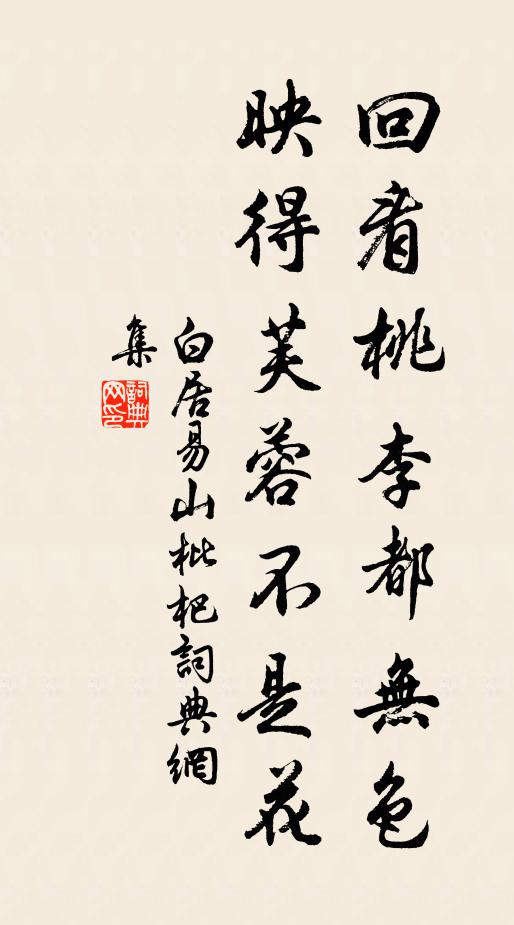 回看桃李都無色
映得芙蓉不是花
白居易山枇杷詞典網
集
詞典網印